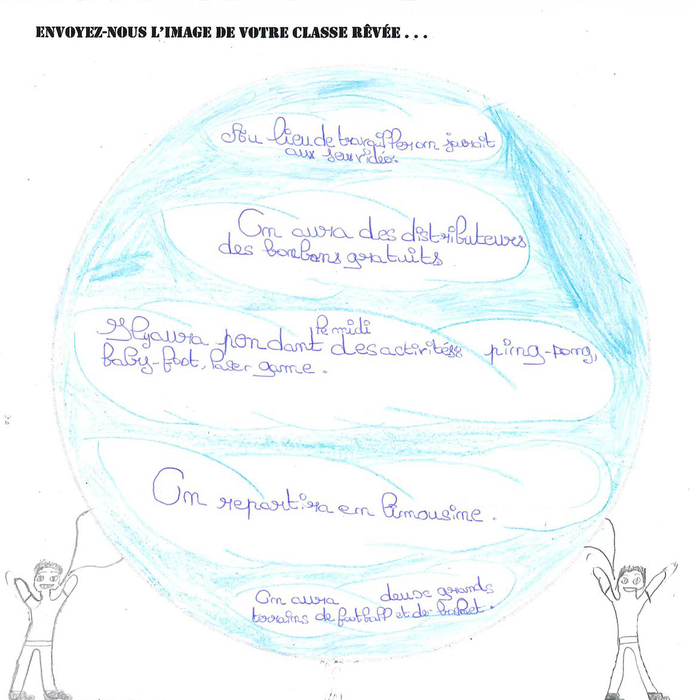 ENVOYEZ-NOUS L'IMAGE DE VOTRE CLASSE RÊVÉE . . .
Au lieu de travailler on jourait
aux jeux vidéo.
On aura des distributeurs
des bonbons gratuits
le midi
Il y aura pendant des activités ping-pong,
baby-foot, laser game.
On repartira en limousine.
On aura deux grands
terrains de football et de basket.